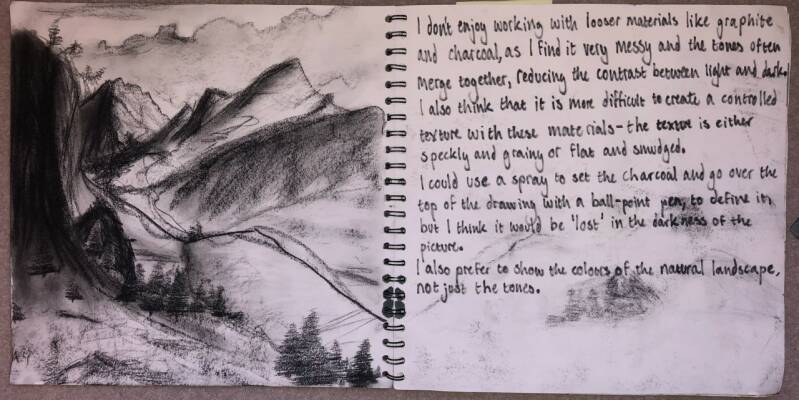 I don't enjoy working with looser materials like graphite
and charcoal, as I find it very messy and the tones often
merge together, reducing the contrast between light and dark.
I also think that it is more difficult to create a controlled
texture with these materials - the texture is either
speckly and grainy or flat and smudged.
I could use a spray to set the charcoal and go over the
top of the drawing with a ball-point pen, to define it,
but I think it would be 'lost' in the darkness of the
picture.
I also prefer to show the colours of the natural landscape,
not just the tones.